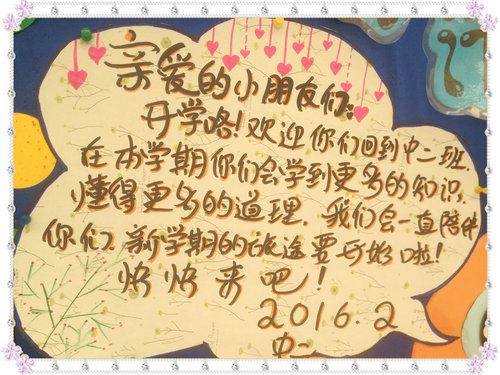 亲爱的小朋友们:
开学咯!欢迎你们回到中二班.
在本学期你们会学到更多的知识,
懂得更多的道理.我们会一直陪伴
你们.新学期的旅途要开始啦!
快快来吧!
2016.2
中二